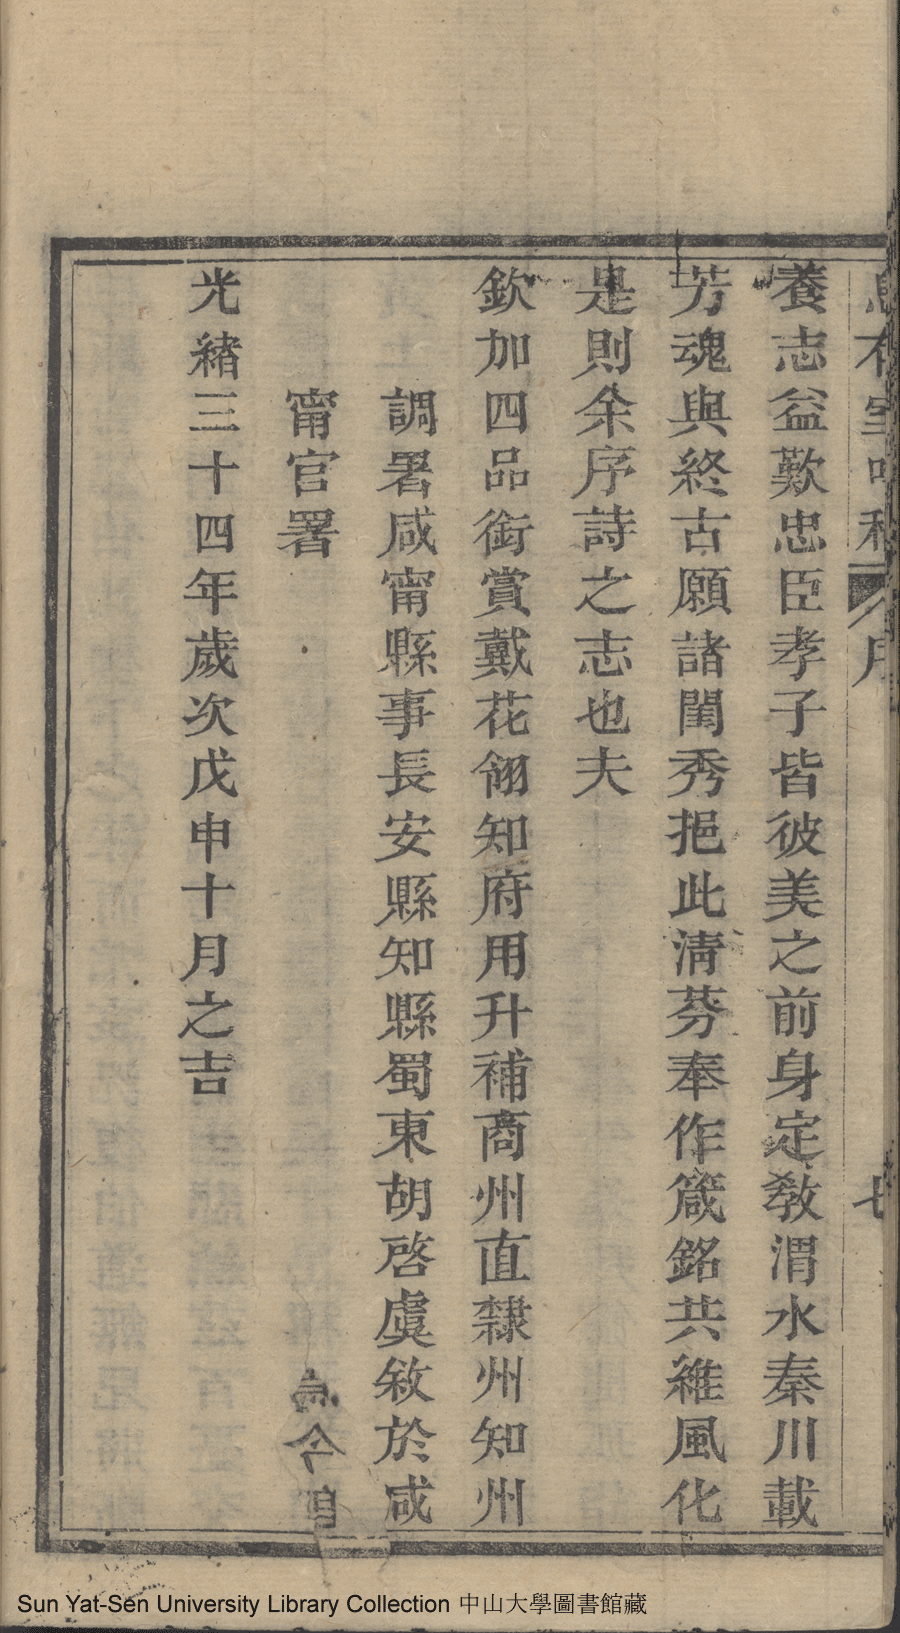 養志益歎忠臣孝子皆彼美之前身定教渭水秦川載
芳魂與終古願諸閨秀挹此清芬奉作箴銘共維風化
是則余序詩之志也夫
欽加四品銜賞戴花翎知府用升補商州直隸州知州
調署咸甯縣事長安縣知縣蜀東胡啓虞敘於咸
甯官署
光緒三十四年歲次戊申十月之吉
Sun Yat-Sen University Library Collection 中山大學圖書館藏